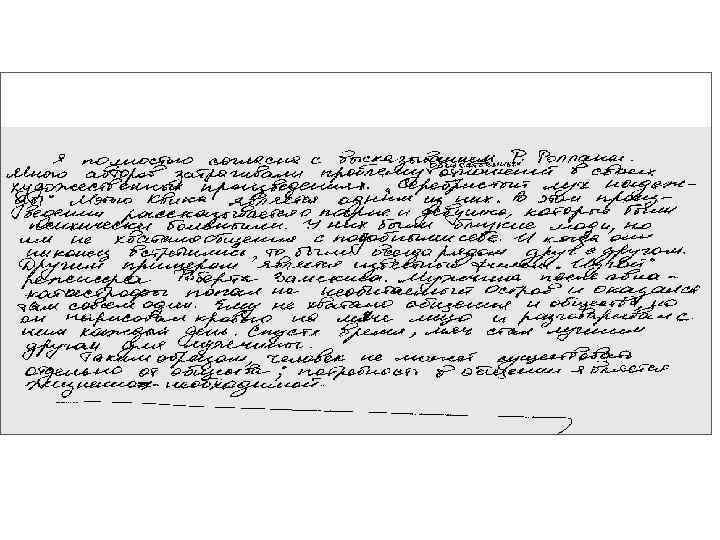 Я полностью согласна с высказыванием Р. Роллана.
Много авторов затрагивали проблему общественных отношений в своих
художественных произведениях. "Серебристый луч надеж-
ды" Мэтью Квика является одним из них. В этом произ-
ведении рассказывается о парне и девушке, которые были
психически больными. У них были близкие люди, но
им не хватало общения с подобными себе. И когда они
наконец встретились, то были всегда рядом друг с другом.
Другим примером является известный фильм "Изгой"
режиссера Роберта Земекиса. Мужчина после авиа-
катастрофы попал на необитаемый остров и оказался
там совсем один. Ему не хватало общения и общества, но
он нарисовал кровью на мяче лицо и разговаривал с
ним каждый день. Спустя время, мяч стал лучшим
другом для мужчины.
Таким образом, человек не может существовать
отдельно от общества; потребность в общении является
жизненно-необходимой.